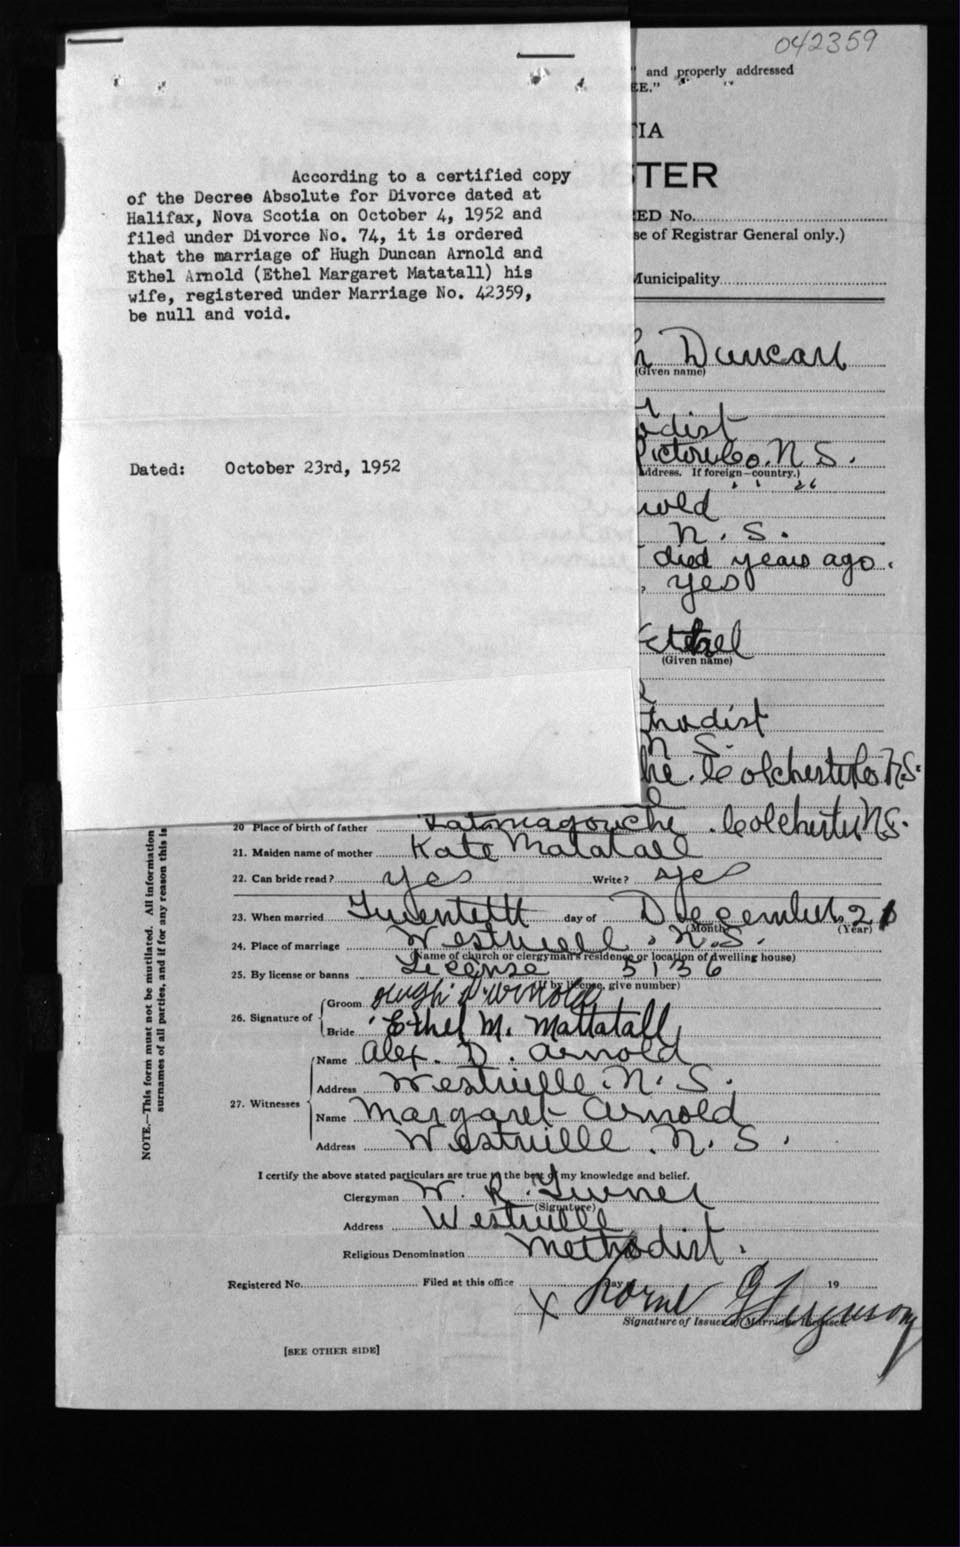 042359
According to a certified copy
of the Decree Absolute for Divorce dated at
Halifax, Nova Scotia on October 4, 1952 and
filed under Divorce No. 74, it is ordered
that the marriage of Hugh Duncan Arnold and
Ethel Arnold (Ethel Margaret Matatall) his
wife, registered under Marriage No. 42359,
be null and void.
Dated: October 23rd, 1952
" and properly addressed
EE."
TIA
STER
ED No.
se of Registrar General only.)
Municipality
h Duncan
(Given name)
odist
Pictou Co. N S.
Address. If foreign—country.)
nold
N. S.
died years ago.
, yes
Ethel
(Given name)
thodist
N S.
he. Colchester Co NS.
20 Place of birth of father Tatmagouche. Colchester NS.
21. Maiden name of mother Kate Matatall
22. Can bride read? yes Write? yes
23. When married Twentieth day of December 21
(Month) (Year)
24. Place of marriage Westville, N.S.
(Name of church or clergyman's residence or location of dwelling house)
25. By license or banns License 5136
(If by license, give number)
26. Signature of Groom Hugh D Arnold
Bride Ethel M. Mattatall
27. Witnesses Name Alex. D. Arnold
Address Westville. N. S.
Name Margaret Arnold
Address Westville. N. S.
I certify the above stated particulars are true to the best of my knowledge and belief.
Clergyman W. R. Turner
(Signature)
Address Westville
Religious Denomination Methodist.
Registered No. Filed at this office day 19
X Lorne G Ferguson
Signature of Issuer of Marriage License.
[SEE OTHER SIDE]
NOTE.—This form must not be mutilated. All information
surnames of all parties, and if for any reason this is